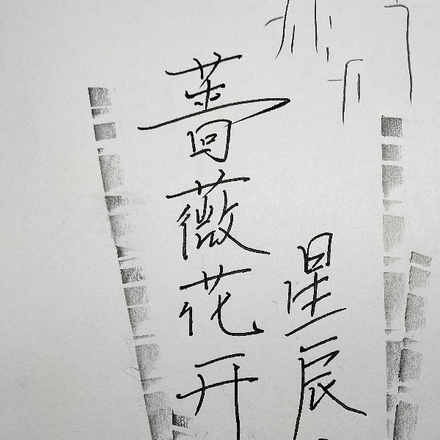 蔷薇花开
星辰